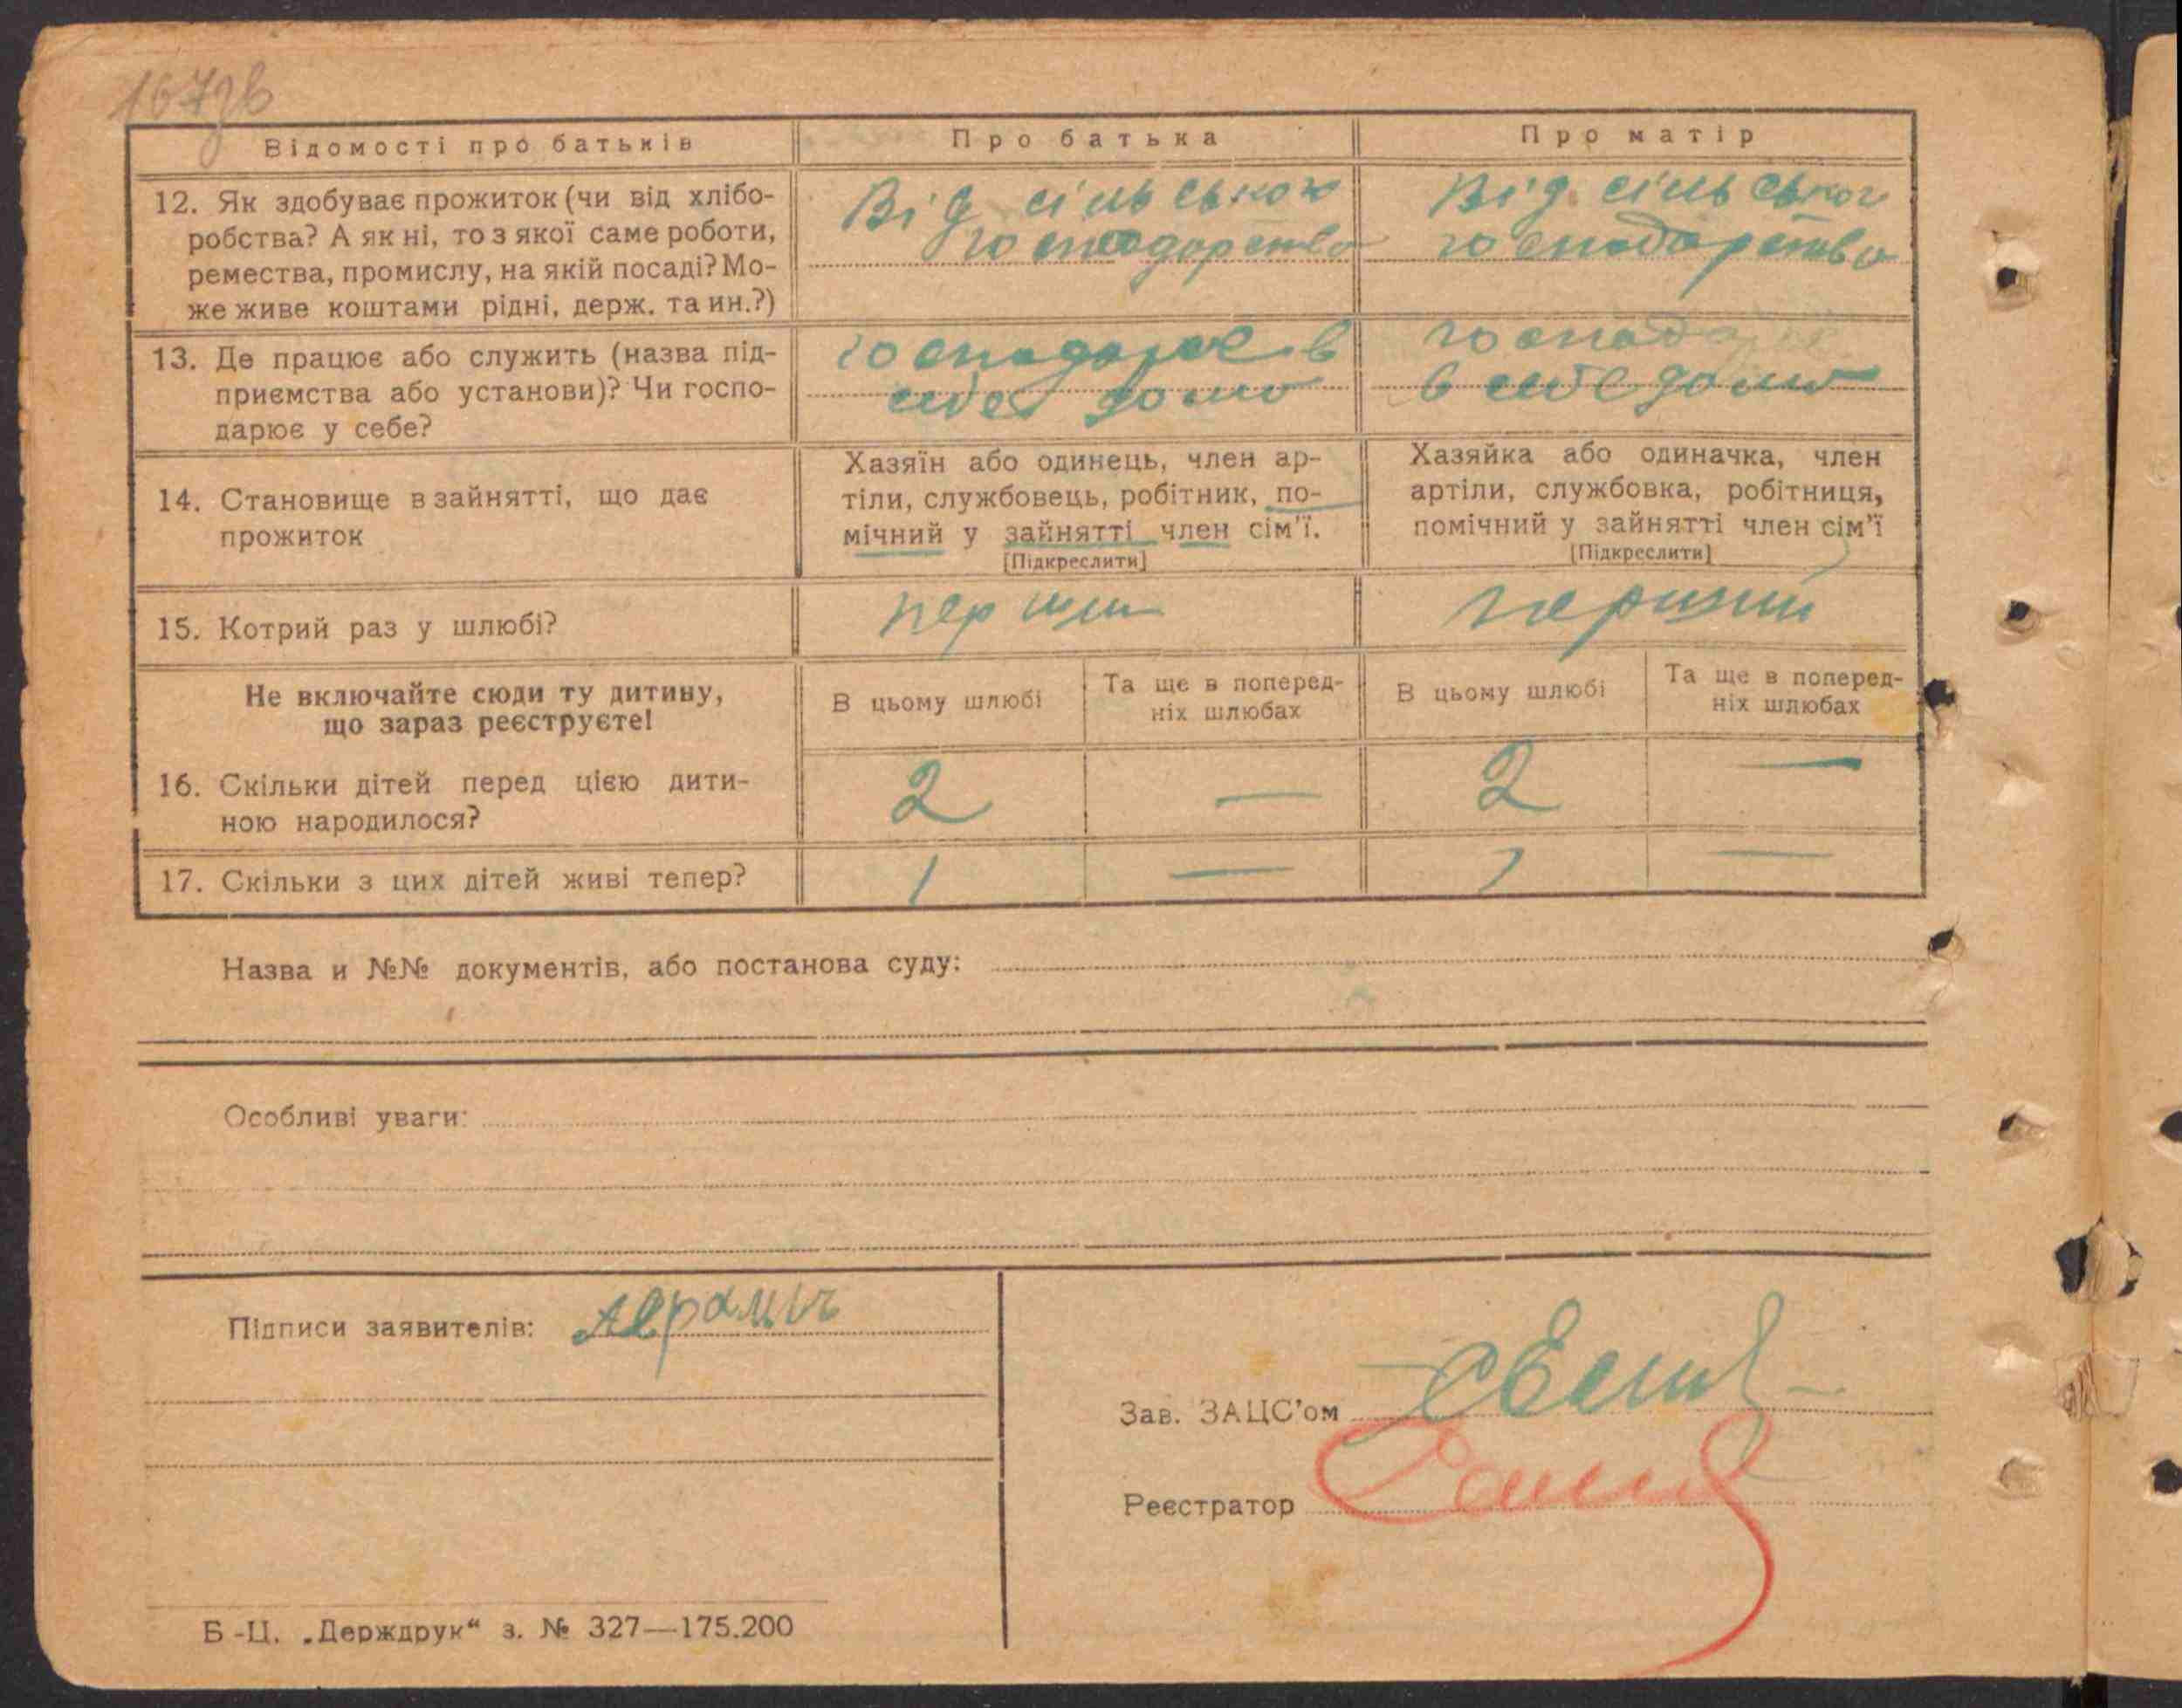 167зв
Відомості про батьків
Про батька
Про матір
12. Як здобуває прожиток (чи від хлібо-
робства? А як ні, то з якої саме роботи,
ремества, промислу, на якій посаді? Мо-
же живе коштами рідні, держ. та ин.?)
Від сільського
господарства
Від сільського
господарства
13. Де працює або служить (назва під-
приємства або установи)? Чи госпо-
дарює у себе?
господарює в
себе дома
господарює
в себе дома
14. Становище в зайнятті, що дає
прожиток
Хазяїн або одинець, член ар-
тіли, службовець, робітник, по-
мічний у зайнятті член сім'ї.
[Підкреслити]
Хазяйка або одиначка, член
артіли, службовка, робітниця,
помічний у зайнятті член сім'ї
[Підкреслити]
15. Котрий раз у шлюбі?
перший
перший
Не включайте сюди ту дитину,
що зараз реєструєте!
В цьому шлюбі
Та ще в поперед-
ніх шлюбах
В цьому шлюбі
Та ще в поперед-
ніх шлюбах
16. Скільки дітей перед цією дити-
ною народилося?
2 — 2 —
17. Скільки з цих дітей живі тепер?
1 — 1 —
Назва и №№ документів, або постанова суду:
Особливі уваги:
Підписи заявителів:
Зав. ЗАЦС'ом
Реєстратор
Б-Ц. „Держдрук“ з. № 327—175.200